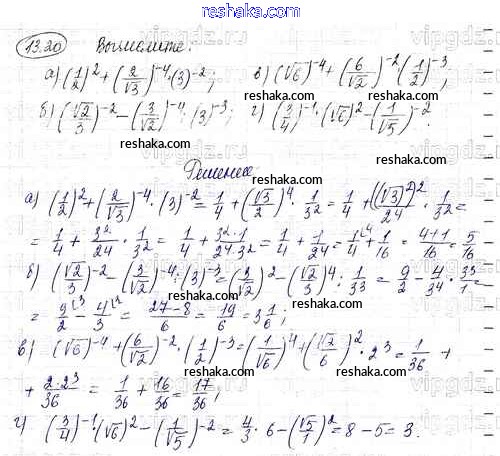 reshak.ru
13.20 Вычислите:
а) (1/2)² + (2/√3)⁻⁴ · (3)⁻²; в) (√6)⁻⁴ + (6/√2)⁻² (1/2)⁻³;
б) (√2/3)⁻² − (3/√2)⁻⁴ : (3)⁻³; г) (3/4)⁻¹ · (√6)² − (1/√5)⁻².
Решение:
а) (1/2)² + (2/√3)⁻⁴ · (3)⁻² = 1/4 + (√3/2)⁴ · 1/3² = 1/4 + ((√3)²)²/2⁴ · 1/3² =
= 1/4 + 3²/2⁴ · 1/3² = 1/4 + 3²·1/2⁴·3² = 1/4 + 1/2⁴ = 1/4 + 1/16 = 4+1/16 = 5/16
б) (√2/3)⁻² − (3/√2)⁻⁴ : (3)⁻³ = (3/√2)² − (√2/3)⁴ : 1/3³ = 9/2 − 4/3⁴ · 3³/1 =
= 9/2 − 4/3 = 27−8/6 = 19/6 = 3 1/6;
в) (√6)⁻⁴ + (6/√2)⁻² · (1/2)⁻³ = (1/√6)⁴ + (√2/6)² · 2³ = 1/36 +
+ 2·2³/36 = 1/36 + 16/36 = 17/36;
г) (3/4)⁻¹ · (√6)² − (1/√5)⁻² = 4/3 · 6 − (√5/1)² = 8 − 5 = 3.